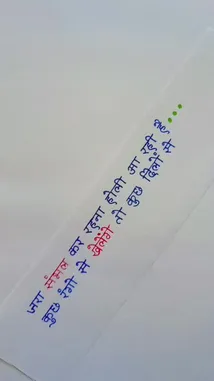 जरा संभल कर रहना होली आ रही है...
कुछ रंगों से खेलेंगे तो कुछ दिलों से